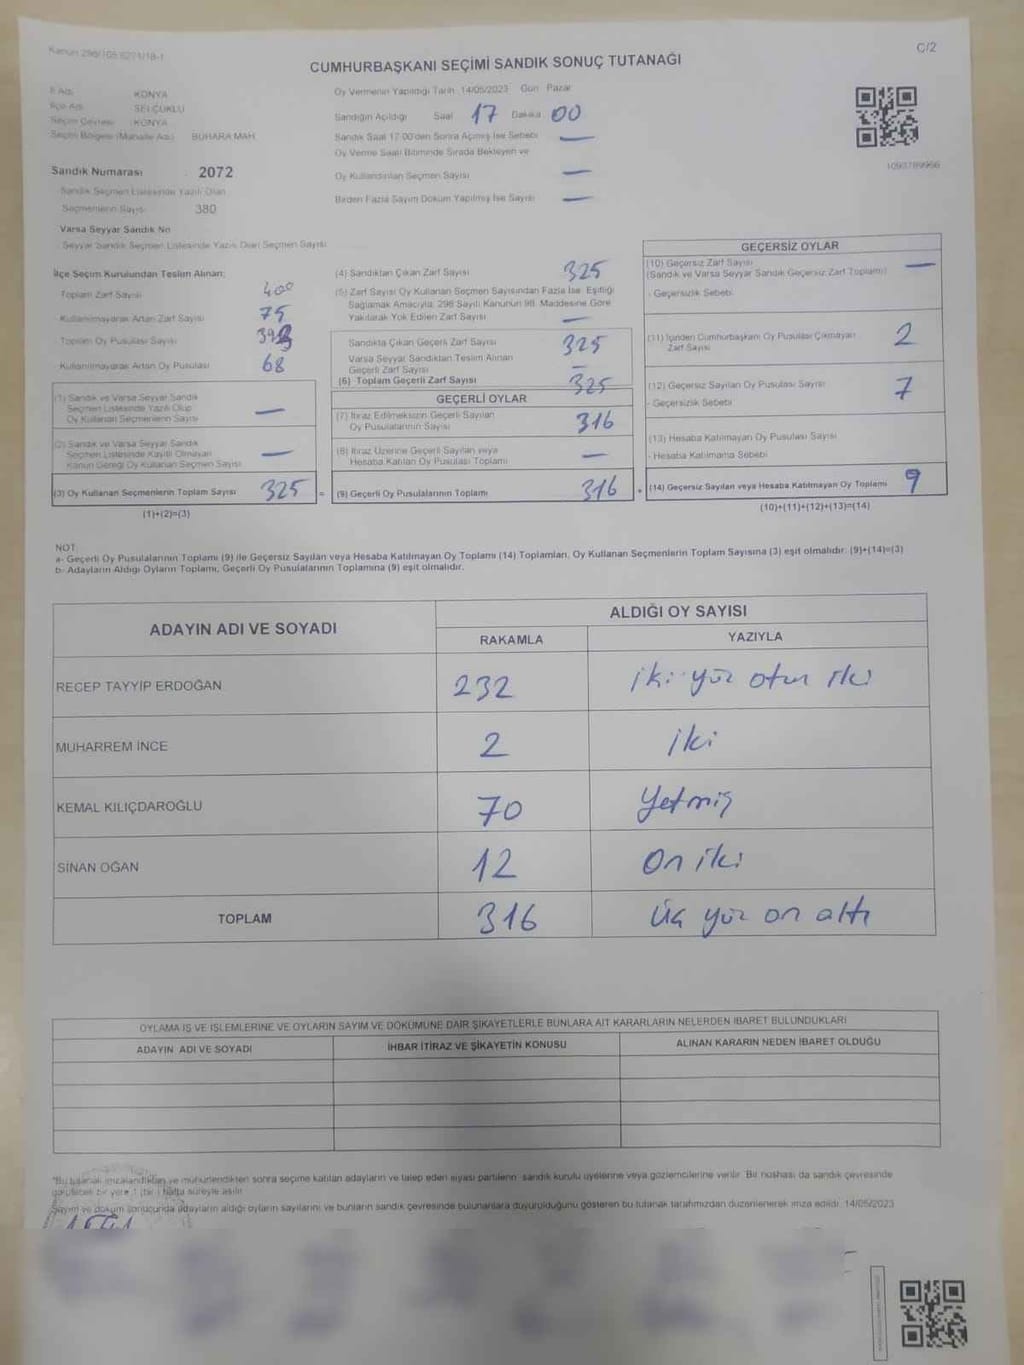 Kanun 298/105 6271/18-1
C/2
CUMHURBAŞKANI SEÇİMİ SANDIK SONUÇ TUTANAĞI
İl Adı KONYA
İlçe Adı SELÇUKLU
Seçim Çevresi KONYA
Seçim Bölgesi (Mahalle Adı) BUHARA MAH.
Sandık Numarası 2072
Sandık Seçmen Listesinde Yazılı Olan
Seçmenlerin Sayısı 380
Varsa Seyyar Sandık No
Seyyar Sandık Seçmen Listesinde Yazılı Olan Seçmen Sayısı
Oy Vermenin Yapıldığı Tarih 14/05/2023 Gün Pazar
Sandığın Açıldığı Saat 17 Dakika 00
Sandık Saat 17.00'den Sonra Açılmış İse Sebebi —
Oy Verme Saati Bitiminde Sırada Bekleyen ve
Oy Kullandırılan Seçmen Sayısı —
Birden Fazla Sayım Döküm Yapılmış İse Sayısı —
1093789966
İlçe Seçim Kurulundan Teslim Alınan:
Toplam Zarf Sayısı 400
Kullanılmayarak Artan Zarf Sayısı 75
Toplam Oy Pusulası Sayısı
Kullanılmayarak Artan Oy Pusulası 68
(1) Sandık ve Varsa Seyyar Sandık
Seçmen Listesinde Yazılı Olup
Oy Kullanan Seçmenlerin Sayısı —
(2) Sandık ve Varsa Seyyar Sandık
Seçmen Listesinde Kayıtlı Olmayan
Kanun Gereği Oy Kullanan Seçmen Sayısı —
(3) Oy Kullanan Seçmenlerin Toplam Sayısı 325 =
(1)+(2)=(3)
(4) Sandıktan Çıkan Zarf Sayısı 325
(5) Zarf Sayısı Oy Kullanan Seçmen Sayısından Fazla İse, Eşitliği
Sağlamak Amacıyla, 298 Sayılı Kanunun 98. Maddesine Göre
Yakılarak Yok Edilen Zarf Sayısı —
Sandıkta Çıkan Geçerli Zarf Sayısı 325
Varsa Seyyar Sandıktan Teslim Alınan
Geçerli Zarf Sayısı —
(6) Toplam Geçerli Zarf Sayısı 325
GEÇERLİ OYLAR
(7) İtiraz Edilmeksizin Geçerli Sayılan
Oy Pusulalarının Sayısı 316
(8) İtiraz Üzerine Geçerli Sayılan veya
Hesaba Katılan Oy Pusulası Toplamı —
(9) Geçerli Oy Pusulalarının Toplamı 316 +
GEÇERSİZ OYLAR
(10) Geçersiz Zarf Sayısı —
(Sandık ve Varsa Seyyar Sandık Geçersiz Zarf Toplamı)
- Geçersizlik Sebebi
(11) İçinden Cumhurbaşkanı Oy Pusulası Çıkmayan
Zarf Sayısı 2
(12) Geçersiz Sayılan Oy Pusulası Sayısı 7
- Geçersizlik Sebebi
(13) Hesaba Katılmayan Oy Pusulası Sayısı
- Hesaba Katılmama Sebebi
(14) Geçersiz Sayılan veya Hesaba Katılmayan Oy Toplamı 9
(10)+(11)+(12)+(13)=(14)
NOT:
a- Geçerli Oy Pusulalarının Toplamı (9) ile Geçersiz Sayılan veya Hesaba Katılmayan Oy Toplamı (14) Toplamları, Oy Kullanan Seçmenlerin Toplam Sayısına (3) eşit olmalıdır. (9)+(14)=(3)
b- Adayların Aldığı Oyların Toplamı, Geçerli Oy Pusulalarının Toplamına (9) eşit olmalıdır.
ADAYIN ADI VE SOYADI
ALDIĞI OY SAYISI
RAKAMLA YAZIYLA
RECEP TAYYİP ERDOĞAN 232 iki yüz otuz iki
MUHARREM İNCE 2 iki
KEMAL KILIÇDAROĞLU 70 Yetmiş
SİNAN OĞAN 12 On iki
TOPLAM 316 üç yüz on altı
OYLAMA İŞ VE İŞLEMLERİNE VE OYLARIN SAYIM VE DÖKÜMÜNE DAİR ŞİKAYETLERLE BUNLARA AİT KARARLARIN NELERDEN İBARET BULUNDUKLARI
ADAYIN ADI VE SOYADI İHBAR İTİRAZ VE ŞİKAYETİN KONUSU ALINAN KARARIN NEDEN İBARET OLDUĞU
*Bu tutanak imzalandıktan ve mühürlendikten sonra seçime katılan adayların ve talep eden siyasi partilerin sandık kurulu üyelerine veya gözlemcilerine verilir. Bir nüshası da sandık çevresinde
görülebilecek bir yere 1 (bir) hafta süreyle asılır.
Sayım ve döküm sonucunda adayların aldığı oyların sayılarını ve bunların sandık çevresinde bulunanlara duyurulduğunu gösteren bu tutanak tarafımızdan düzenlenerek imza edildi. 14/05/2023